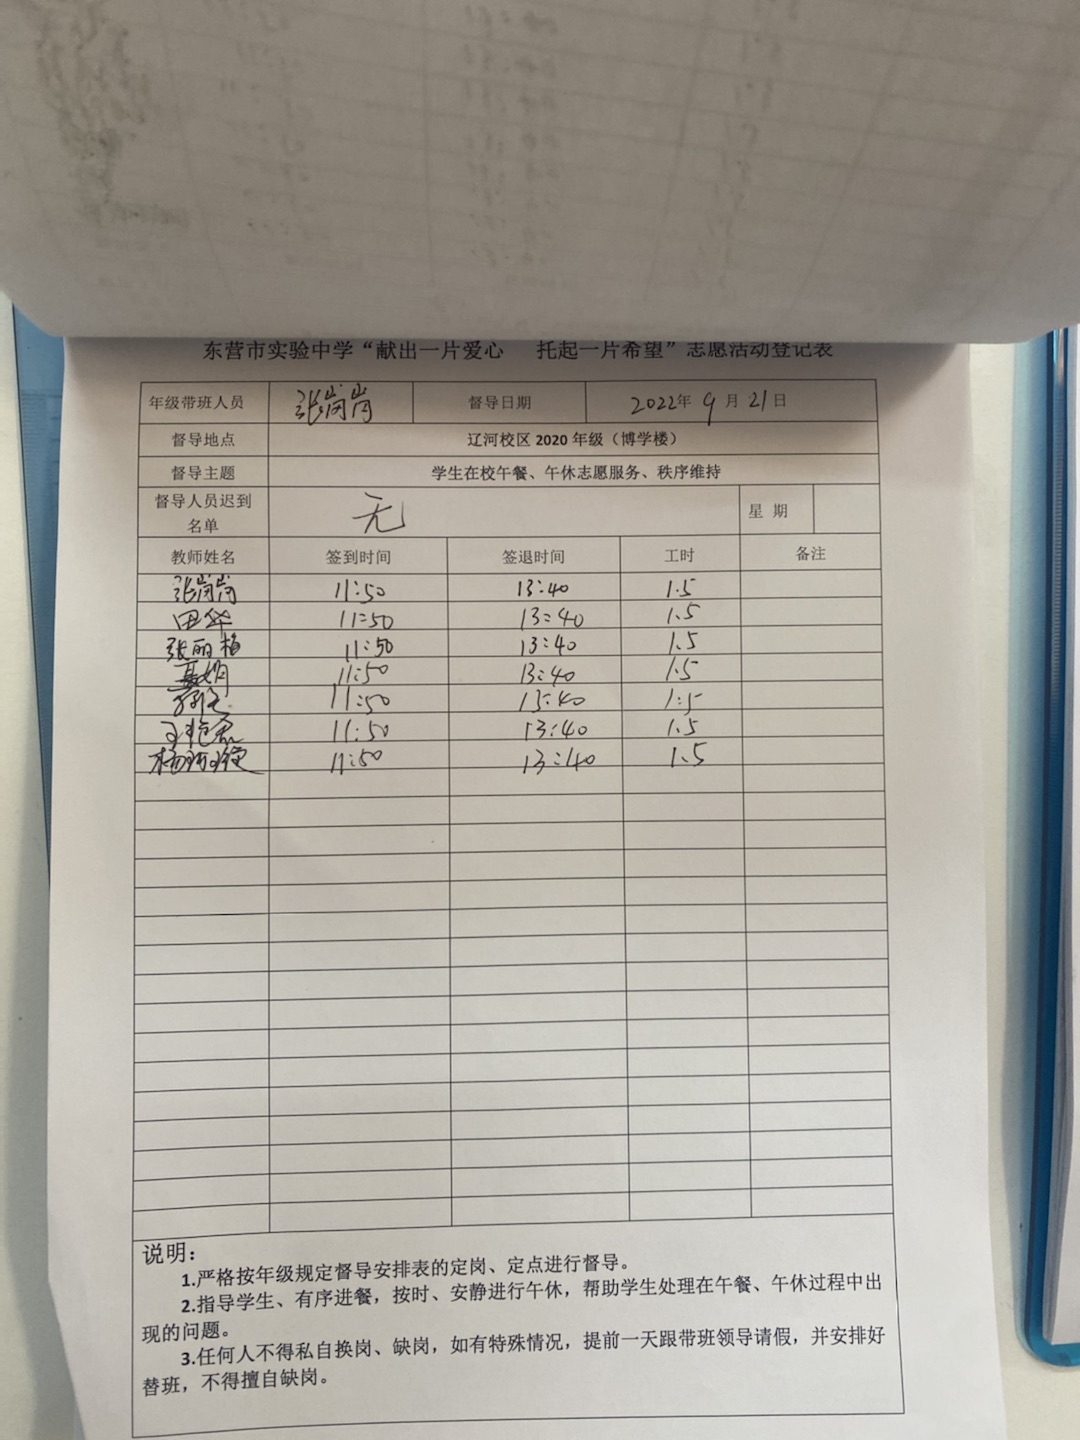 东营市实验中学“献出一片爱心 托起一片希望”志愿活动登记表
年级带班人员 张岗岗 督导日期 2022年 9月 21日
督导地点 辽河校区 2020 年级（博学楼）
督导主题 学生在校午餐、午休志愿服务、秩序维持
督导人员迟到名单 无 星 期
教师姓名 签到时间 签退时间 工时 备注
张岗岗 11:50 13:40 1.5
田华 11:50 13:40 1.5
张丽梅 11:50 13:40 1.5
聂娟 11:50 13:40 1.5
11:50 13:40 1.5
王艳君 11:50 13:40 1.5
11:50 13:40 1.5
说明：
1.严格按年级规定督导安排表的定岗、定点进行督导。
2.指导学生、有序进餐，按时、安静进行午休，帮助学生处理在午餐、午休过程中出
现的问题。
3.任何人不得私自换岗、缺岗，如有特殊情况，提前一天跟带班领导请假，并安排好
替班，不得擅自缺岗。